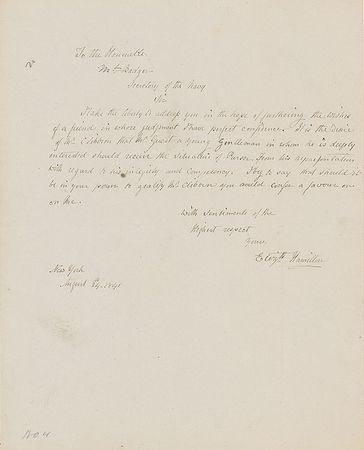 To the Honorable
Mr. Badger
Secretary of the Navy
Sir
I take the liberty to address you in the hope of furthering the wishes
of a friend in whose judgment I have perfect confidence. It is the desire
of Mr. Cliborn that Mr. Guest a young Gentleman in whom he is deeply
interested should receive the Situation of Purser. from his representation
with regard to his integrity and competency. I beg to say that should it
be in your power to gratify Mr. Cliborn you would confer a favour on
on me.
With Sentiments of the
Highest respect
Yours
Elizth Hamilton
New York
August 24. 1841